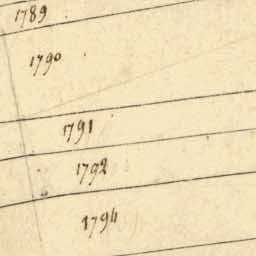 1789
1790
1791
1792
1794